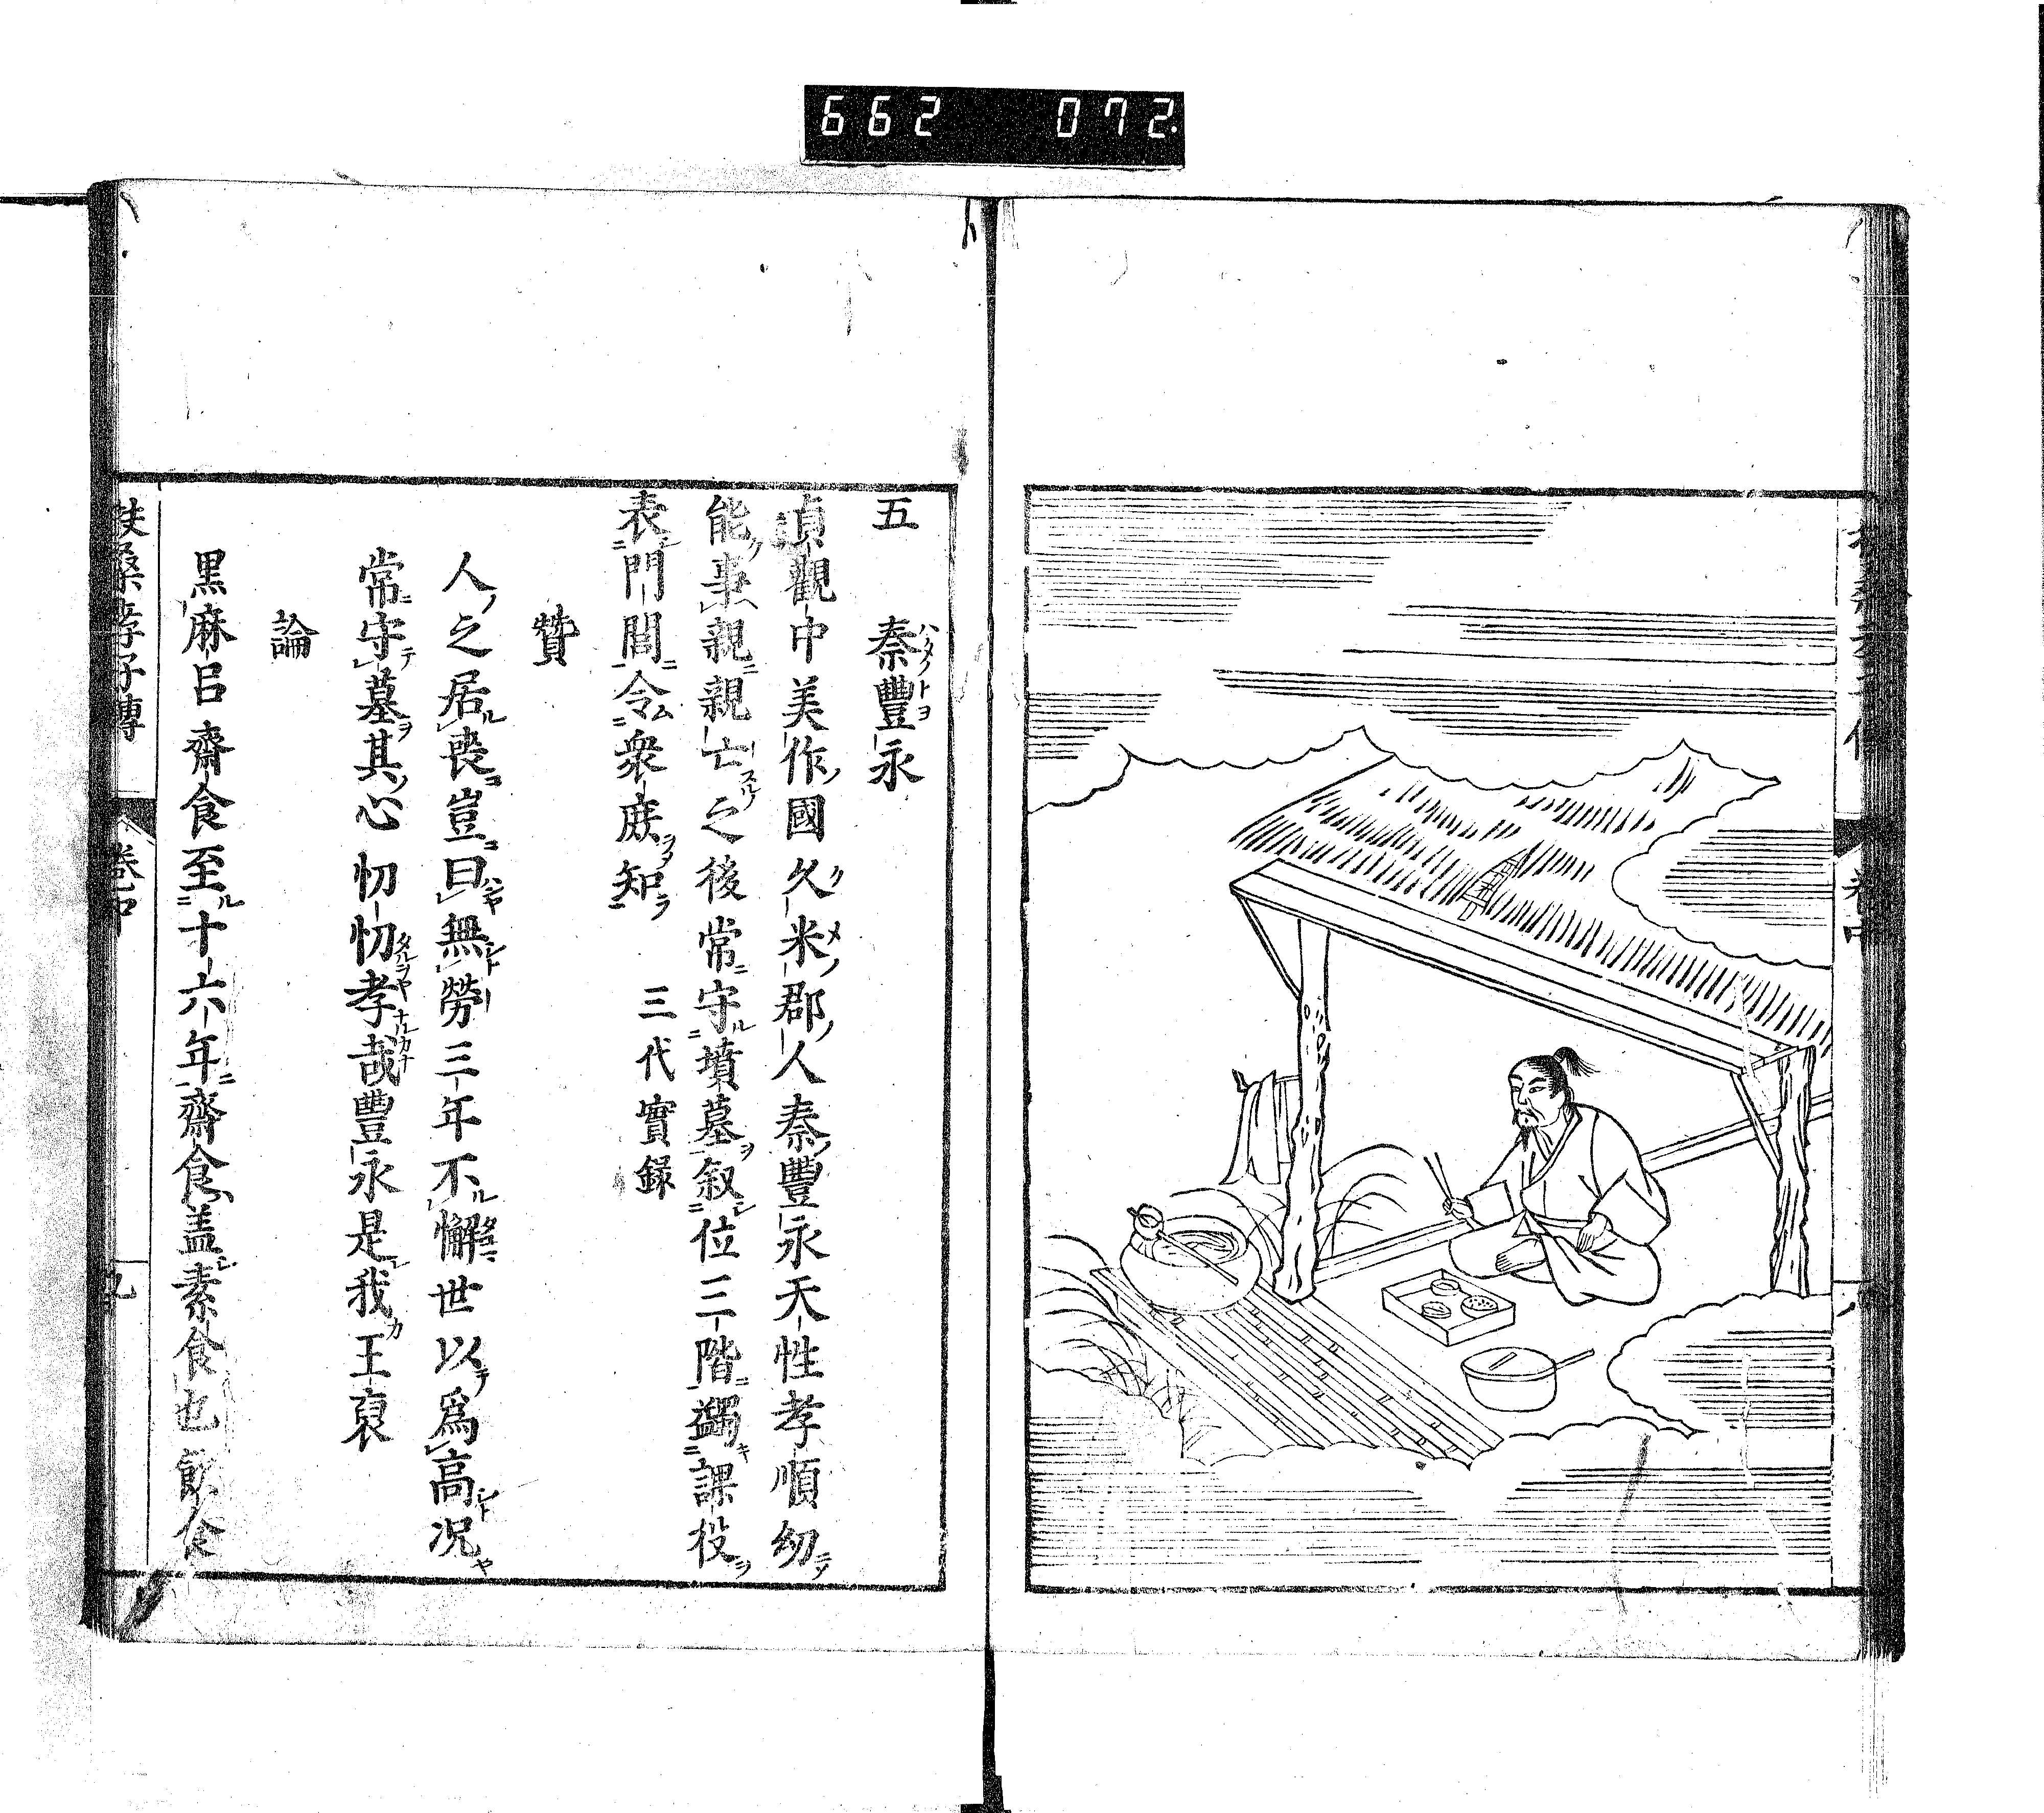 662 072
五 秦豐永
貞觀中美作國久米郡人秦豐永天性孝順幼
能事親親亡之後常守墳墓叙位三階蠲課役
表門閭令衆庶知 三代實録
贊
人之居喪豈曰無勞三年不懈世以爲高況
常守墓其心忉忉孝哉豐永是我王裒
論
黒麻呂齋食至十六年齋食盖素食也飲食
扶桑孝子傳 卷中 九